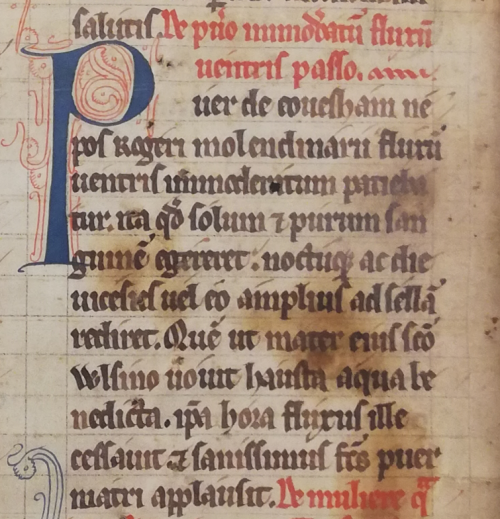 salutis. De pṫio inmoďatū fluxū
uentris passo. .xxiii.
Puer de eouesham ne
pos rogeri molendinarii fluxū
uentris inmoderatum patieba
tur. ita qđ solum ⁊ purum san
guinē egereret. noctuq; ac die
uicesies uel eo amplius ad sellā
rediret. Quē ut mater eius sc̄o
Wlsino uouit hausta aqua be
nedicta. ip̄a hora fluxus ille
cessauit ⁊ sanissimus fc̄s puer
matri applausit. De muliere q̄